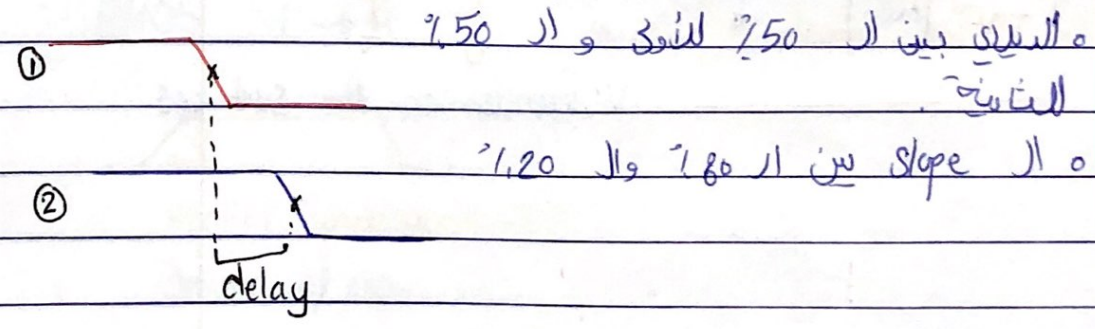 ० الديلاي بين ال 50٪ للأولى و ال 50٪
للثانية .
० ال slope بين ال 80٪ وال 20٪
①
②
delay